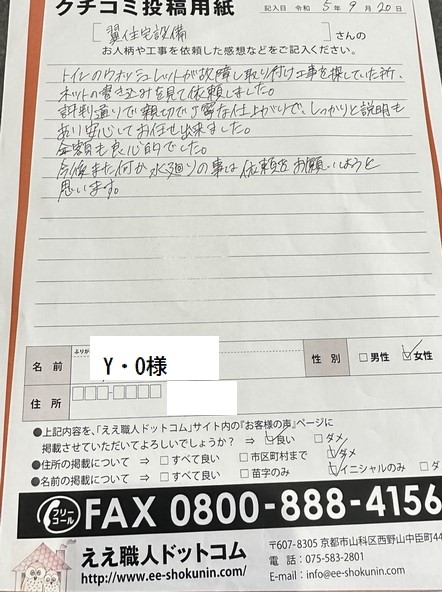 クチコミ投稿用紙
記入日 令和 5年 9月 20日
[翼住宅設備] さんの
お人柄や工事を依頼した感想などをご記入ください。
トイレのウォシュレットが故障し取り付け工事を探していた所、
ネットの書き込みを見て依頼しました。
評判通りで親切で丁寧な仕上がりで、しっかりと説明も
あり安心してお任せ出来ました。
金額も良心的でした。
今後また何か水廻りの事は依頼をお願いしようと
思います。
名前 ふりが Y・O様 性別 □男性 ☑女性
住所
●上記内容を、「ええ職人ドットコム」サイト内の『お客様の声』ページに
掲載させていただいてよろしいでしょうか？ ⇒ ☑良い □ダメ
●住所の掲載について ⇒ □すべて良い □市区町村まで ☑ダメ
●名前の掲載について ⇒ □すべて良い □苗字のみ ☑イニシャルのみ □ダ
フリーコール FAX 0800-888-4156
ええ職人ドットコム
http://www.ee-shokunin.com/
〒607-8305 京都市山科区西野山中臣町44
電話：075-583-2801
E-mail：info@ee-shokunin.com